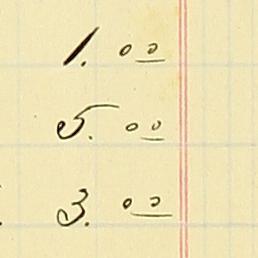 1. 00
5. 00
3. 00